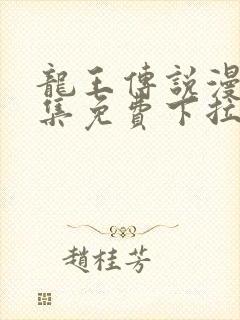 龍王傳說漫
集免費下拉
趙桂芳